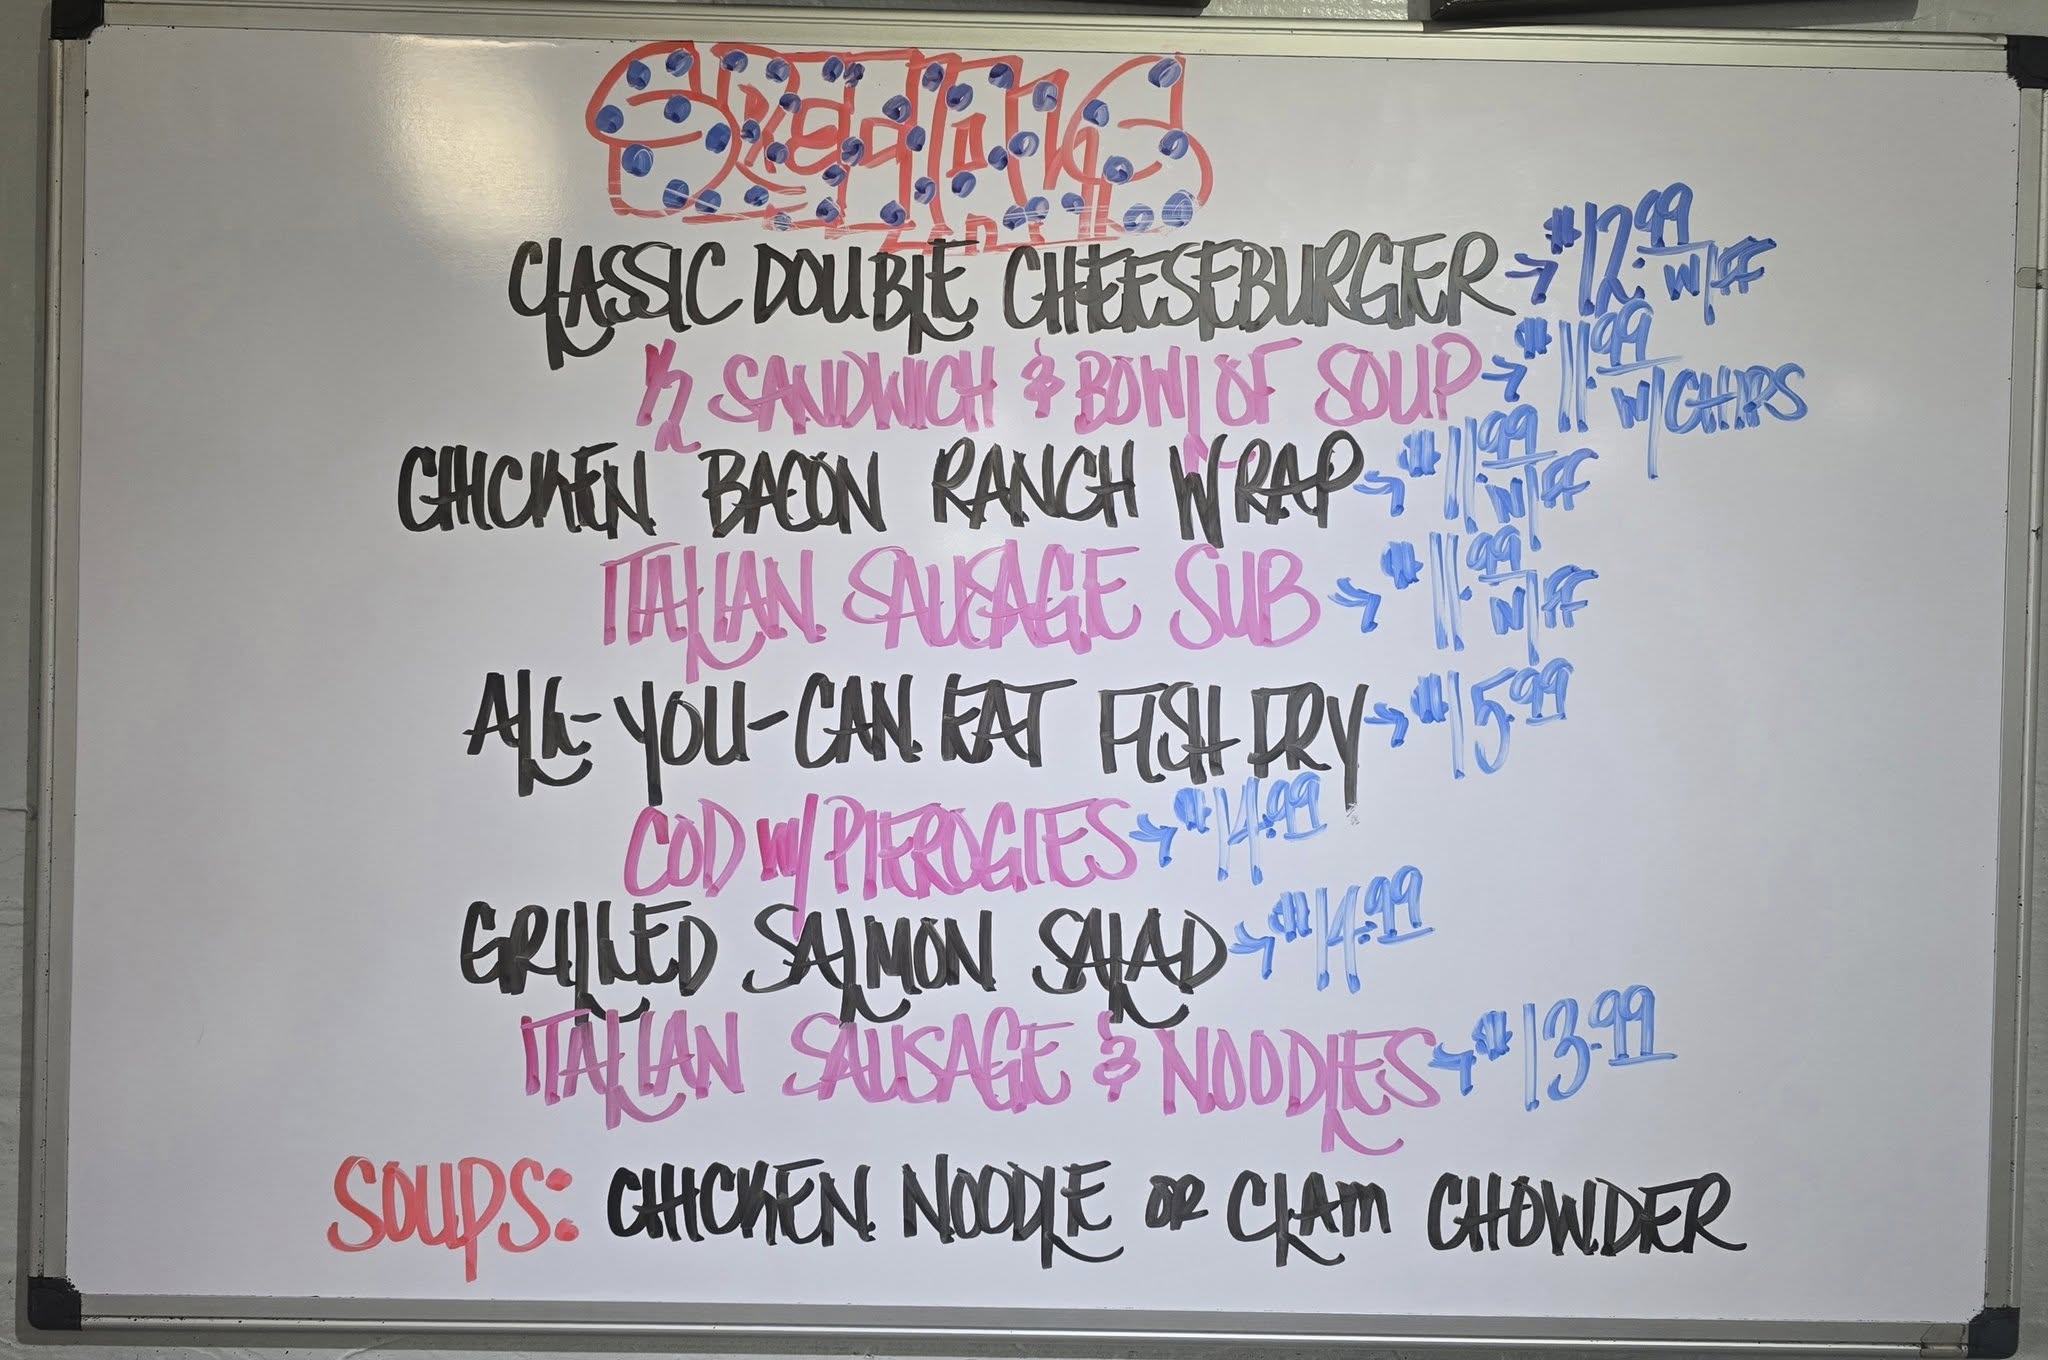 SPECIALS
CLASSIC DOUBLE CHEESEBURGER → $12.99 W/FF
1/2 SANDWICH & BOWL OF SOUP → $11.99 W/CHIPS
CHICKEN BACON RANCH WRAP → $11.99 W/FF
ITALIAN SAUSAGE SUB → $11.99 W/FF
ALL-YOU-CAN EAT FISH FRY → $15.99
COD W/ PIEROGIES → $14.99
GRILLED SALMON SALAD → $14.99
ITALIAN SAUSAGE & NOODLES → $13.99
SOUPS: CHICKEN NOODLE OR CLAM CHOWDER